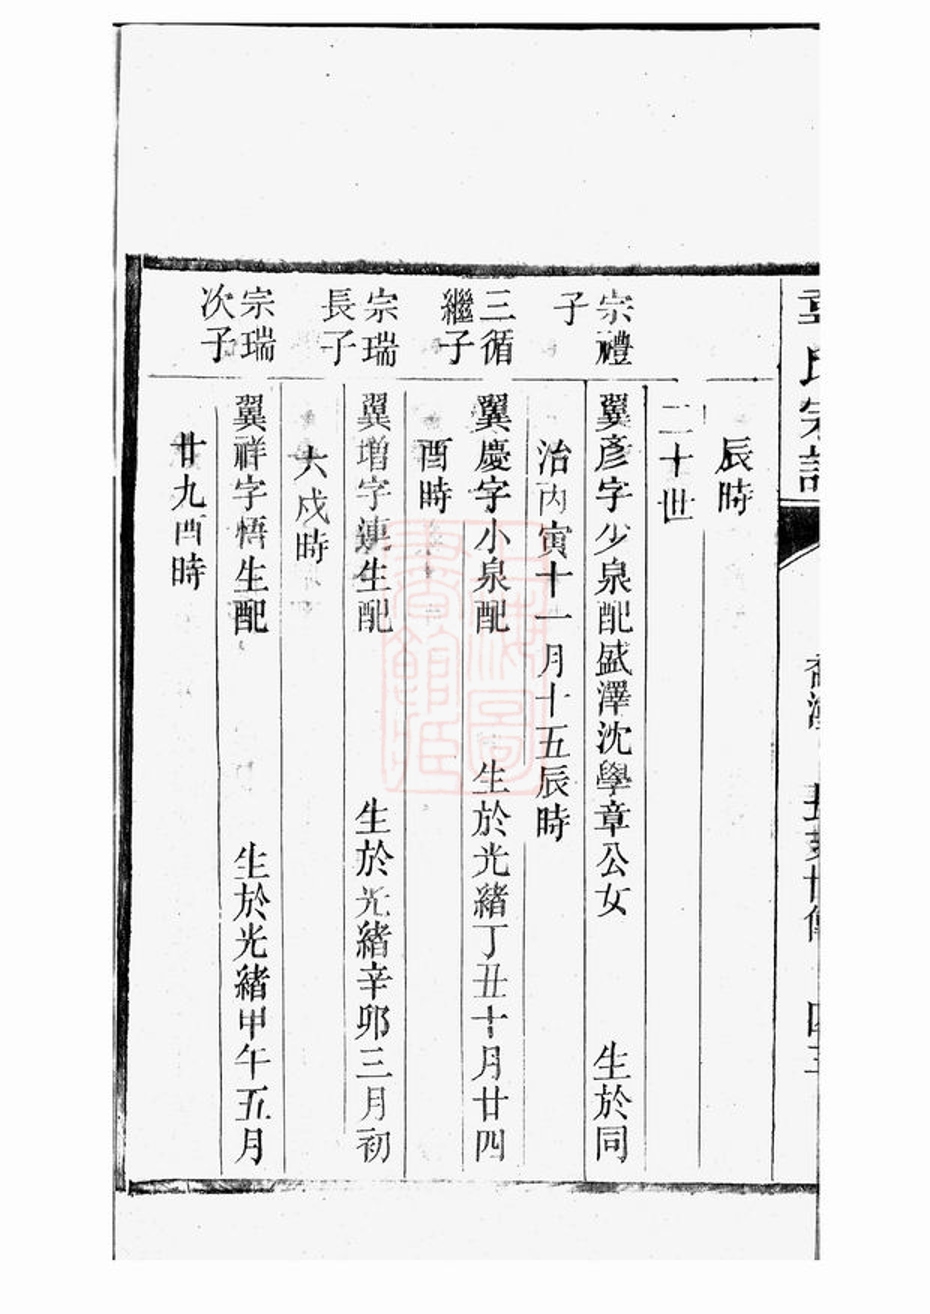 氏宗譜
辰時
二十世
宗禮
子
翼彥字少泉配盛澤沈學章公女　生於同
治丙寅十一月十五辰時
三循
繼子
翼慶字小泉配　生於光緒丁丑十月廿四
酉時
宗瑞
長子
翼增字蓮生配　生於光緒辛卯三月初
六戌時
宗瑞
次子
翼祥字悟生配　生於光緒甲午五月
廿九酉時